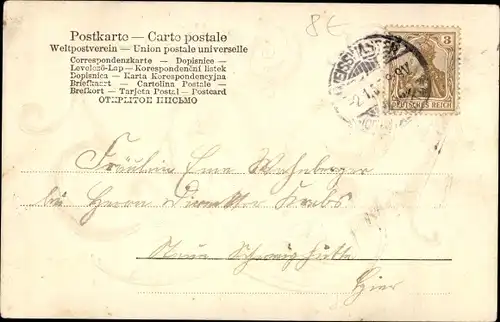 8£
Postkarte — Carte postale
Weltpostverein — Union postale universelle
Correspondenzkarte — Dopisnice —
Levelező-Lap — Korespondenční lístek
Dopisnica — Karta Korespondencyjna
Briefkaart — Cartolina Postale —
Brefkort — Tarjeta Postal — Postcard
ОТКРЫТОЕ ПИСЬМО
3
DEUTSCHES REICH
Fräulein Erne
bei Herrn Direktor Krebs
Neue
Hier